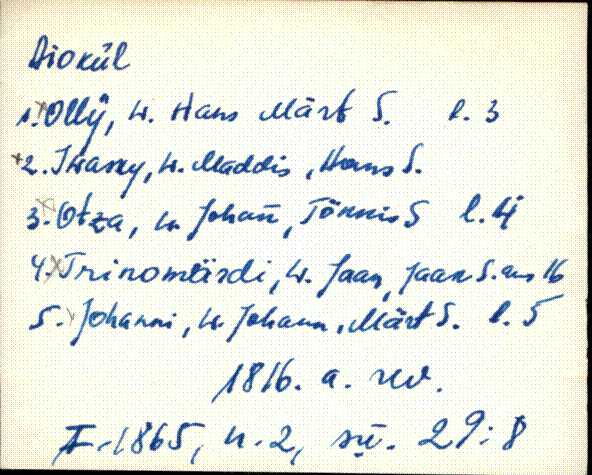 Aiokül
1. Ollÿ, W. Hans Märt S. l. 3
2. Iwasky, W. Maddis, Hans S.
3. Otza, W. Johan̄, Tönnis S l. 4
4. Trinomärdi, W. Jaan, Jaan S. aus 16
5. Johanni, W. Johann, Märt S. l. 5
1816. a. rev.
F. 1865, n. 2, sü. 29:8